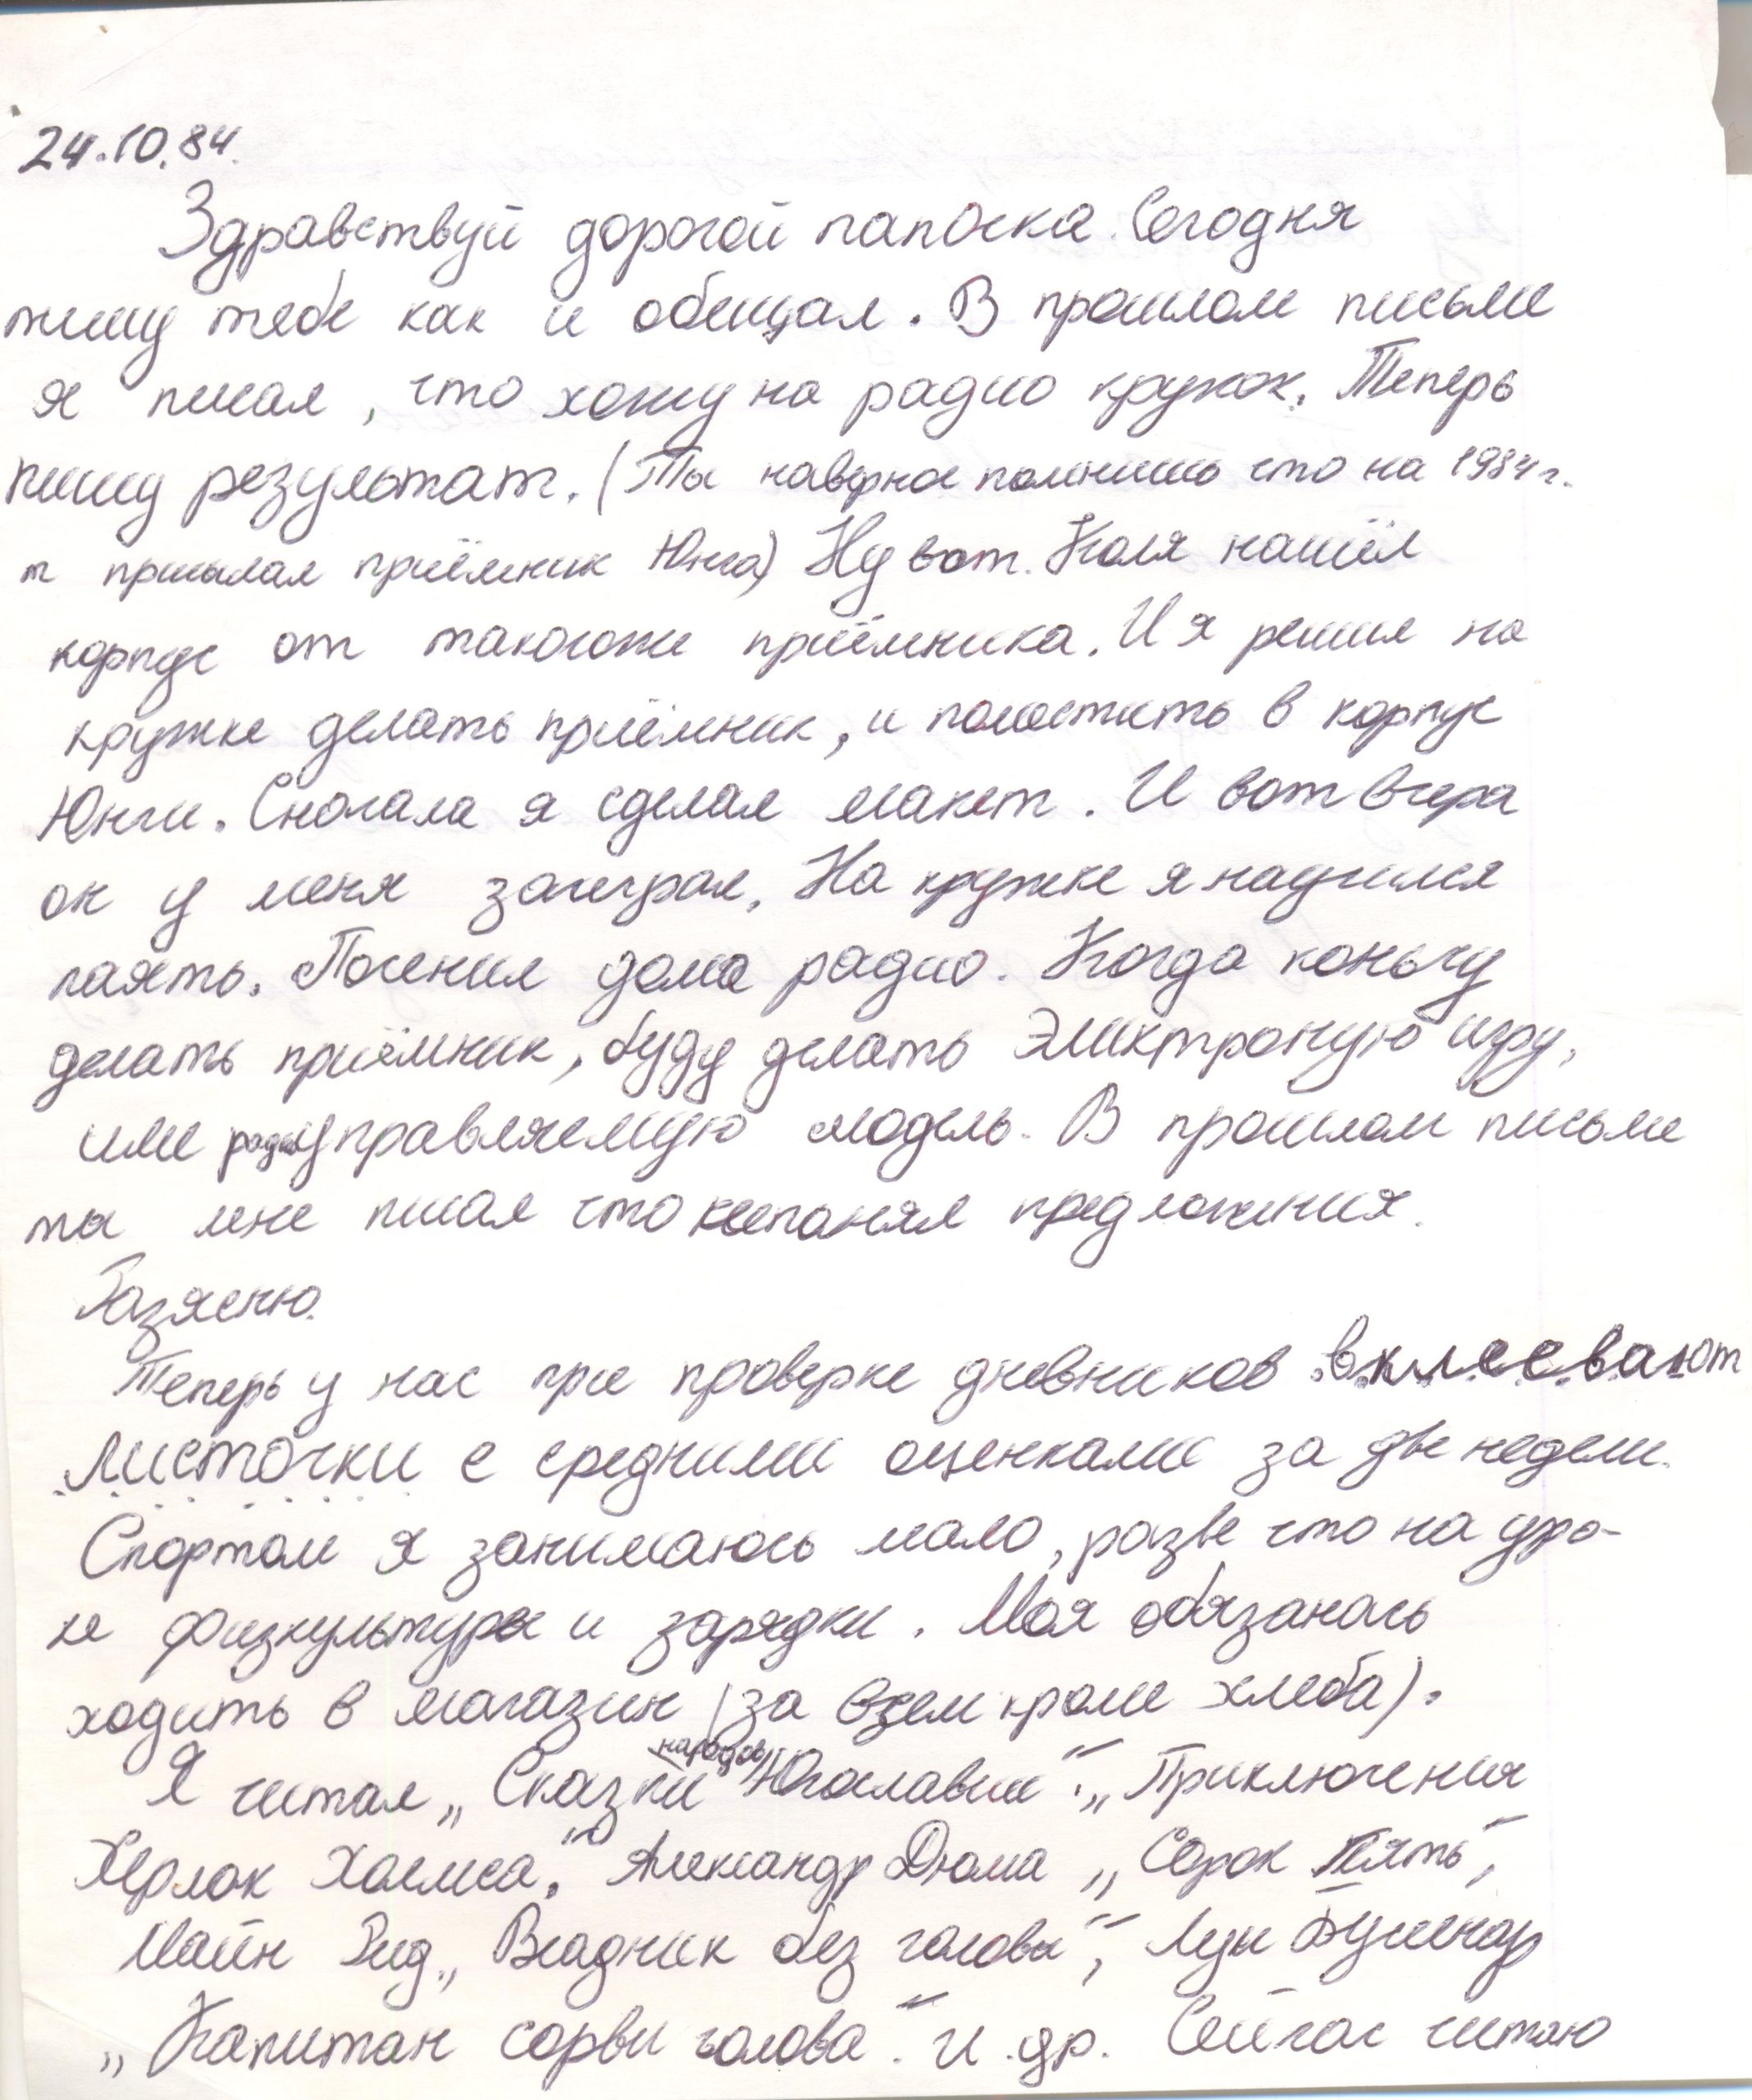 24.10.84.
Здравствуй дорогой папочка. Сегодня
пишу тебе как и обещал. В прошлом письме
я писал, что хожу на радио кружок. Теперь
пишу результат. (Ты наверное помнишь что на 1984 г.
т присылал приёмник Юнга) Ну вот. Коля нашёл
корпус от такогоже приёмника. И я решил на
кружке делать приёмник, и поместить в корпус
Юнги. Сначала я сделал макет. И вот вчера
он у меня заиграл. На кружке я научился
паять. Починил дома радио. Когда коньчу
делать приёмник, буду делать электроную игру,
или радиоуправляемую модель. В прошлом письме
ты мне писал что непонял предложения.
Разясню.
Теперь у нас при проверке дневников вклеевают
листочки с средними оценками за две недели.
Спортом я занимаюсь мало, разве что на уро-
ке физкультуры и зарядки. Моя обязанась
ходить в магазин (за всем кроме хлеба).
народов
Я читал „Сказки Югославии". „Приключения
Херлок Холмса". Александр Дюма „Сорок пять",
Майн Рид „Всадник без головы", Луи Буссенар
„Капитан сорви голова". и др. Сейчас читаю